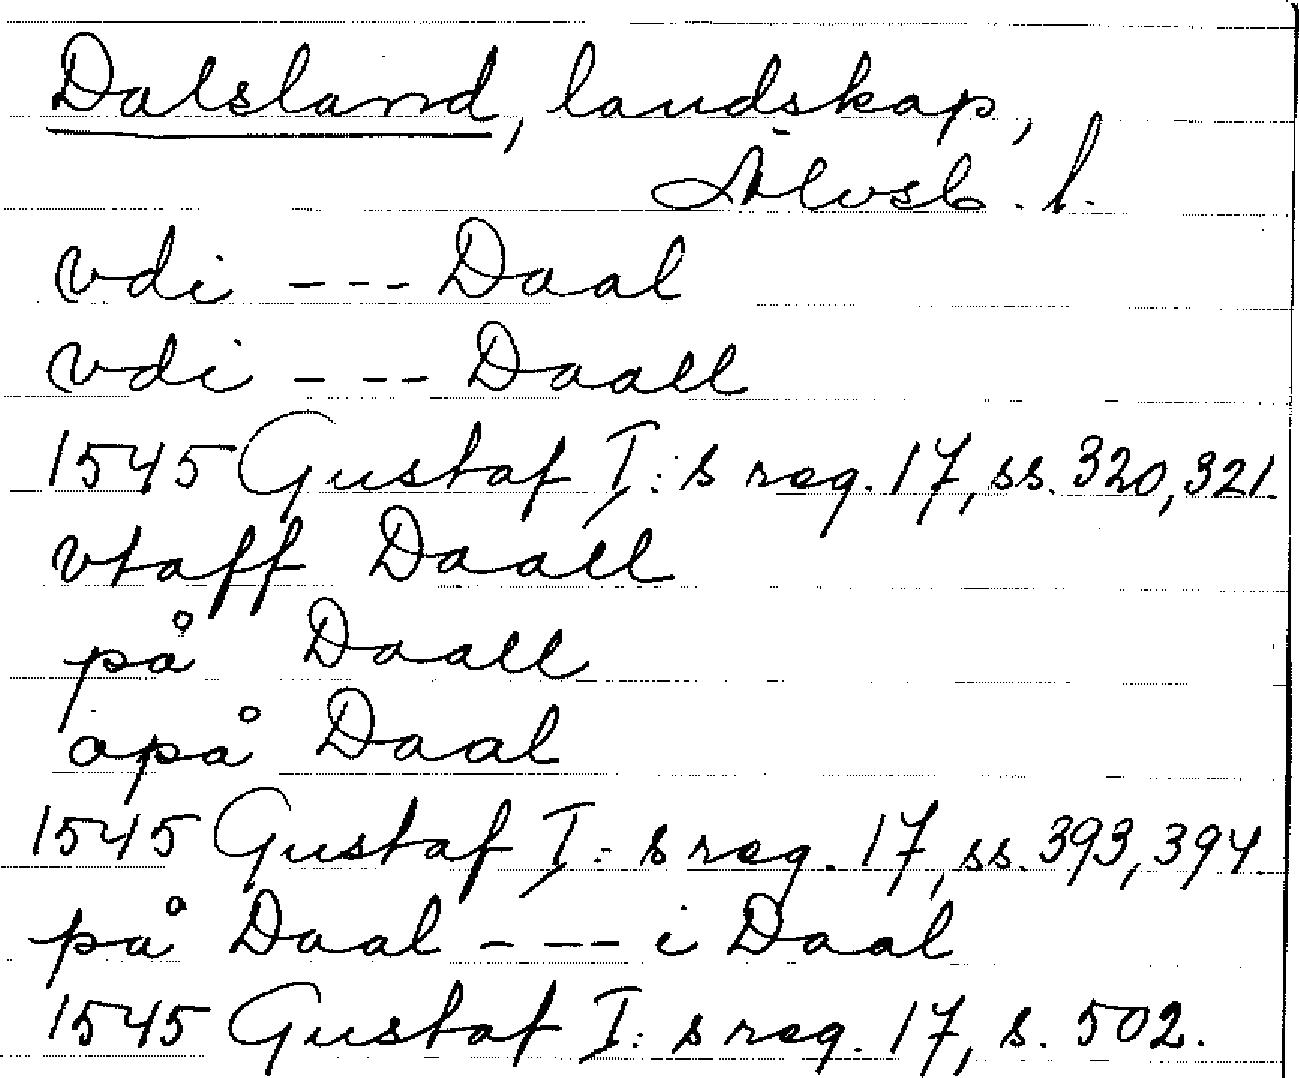 Dalsland, landskap,
Älvsb. l.
vdi --- Daal
vdi --- Daall
1545 Gustaf I:s reg. 17, ss. 320, 321.
vtaff Daall
på Daall
apå Daal
1545 Gustaf I:s reg. 17, ss. 393, 394.
på Daal --- i Daal
1545 Gustaf I:s reg. 17, s. 502.